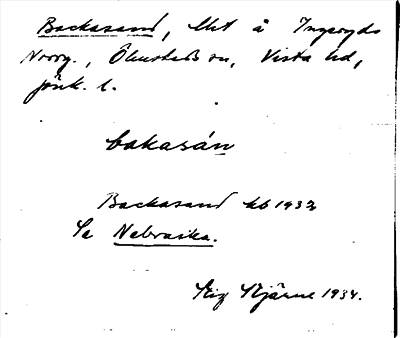 Backasand, lht å Ingaryds
Norrg., Ölmstads sn, Vista hd,
Jönk. l.
bakasán
Backasand kb 1932
Se Nebraska.
Stig Stjärne 1934.